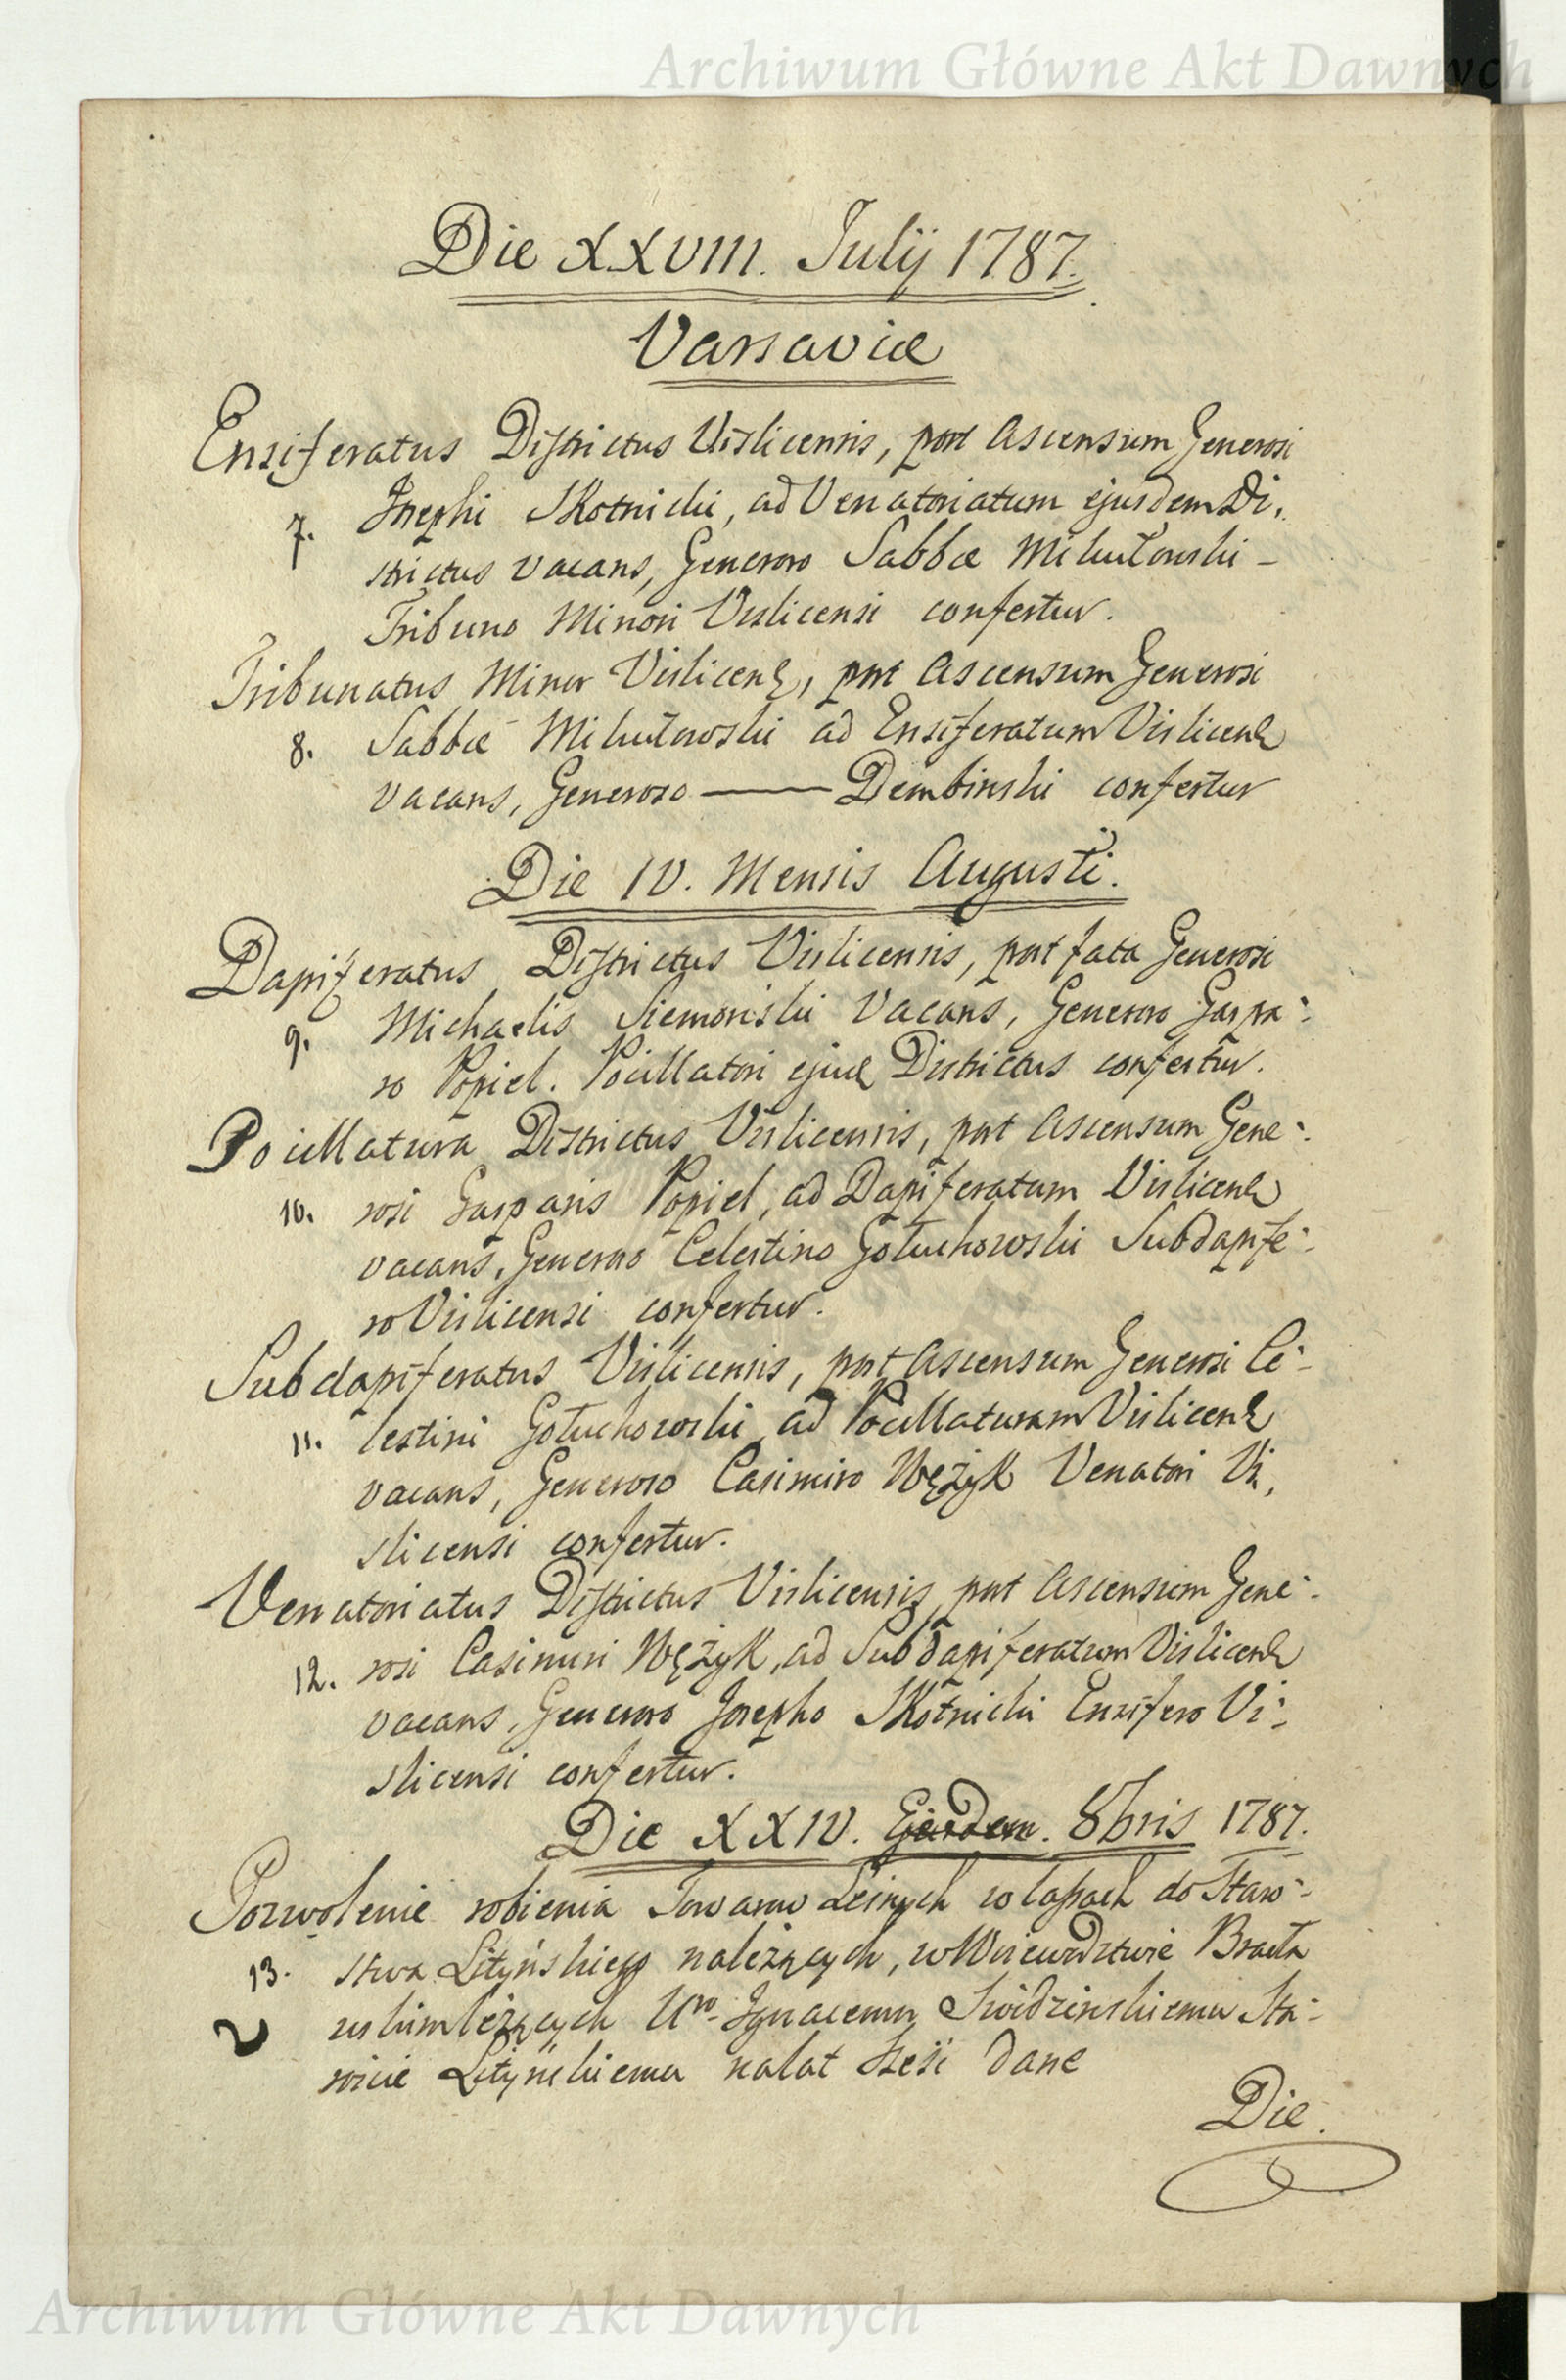 Archiwum Główne Akt Dawnych
Die XXVIII. Julij 1787.
Varsaviæ
Ensiferatus Districtus Vislicensis, post Ascensum Generosi
7. Josephi Skotnicki, ad Venatoriatum ejusdem Di,
strictus vacans, Generoso Sabbæ Mikułowski -
Tribuno Minori Vislicensi confertur.
Tribunatus Minor Vislicens, post Ascensum Generosi
8. Sabbæ Mikułowski ad Ensiferatum Vislicens
vacans, Generoso —— Dembinski confertur
Die IV. Mensis Augusti.
Dapiferatus Districtus Vislicensis, post fata Generosi
9. Michaelis Siemoński Vacans, Generoso Gaspa:
ro Popiel. Pocillatori ejusd Districtus confertur.
Pocillatura Districtus Vislicensis, post Ascensum Gene:
10. rosi Gasparis Popiel, ad Dapiferatum Vislicens
vacans, Generoso Celestino Gołuchowski Subdapife:
ro Vislicensi confertur.
Subdapiferatus Vislicensis, post Ascensum Generosi Ce:
11. lestini Gołuchowski ad Pocillaturam Vislicens
vacans, Generoso Casimiro Wężyk Venatori Vi,
slicensi confertur.
Venatoriatus Districtus Vislicensis, post Ascensum Gene:
12. rosi Casimiri Wężyk, ad Subdapiferatum Vislicens
vacans, Generoso Josepho Skotnicki Ensifero Vi:
slicensi confertur.
Die XXIV. Ejusdem. 8bris 1787.
Pozwolenie robienia Towarow Leśnych w lasach do Staro:
13. stwa Lityńskiego należących, w Woiewodztwie Bracła
wskim leżących Uro. Ignacemu Swidzinskiemu Sta:
roście Lityńskiemu na lat sześć dane
Die
Archiwum Główne Akt Dawnych